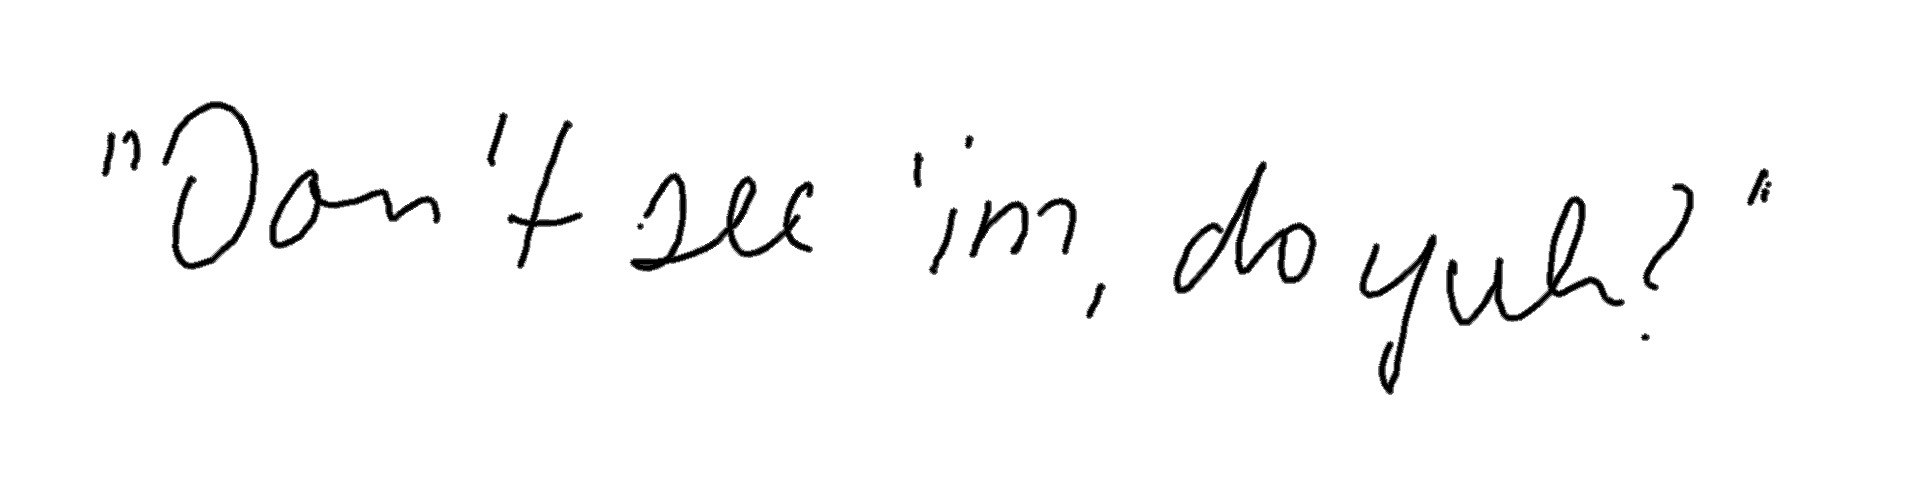 "Don't see 'im, do yuh?"